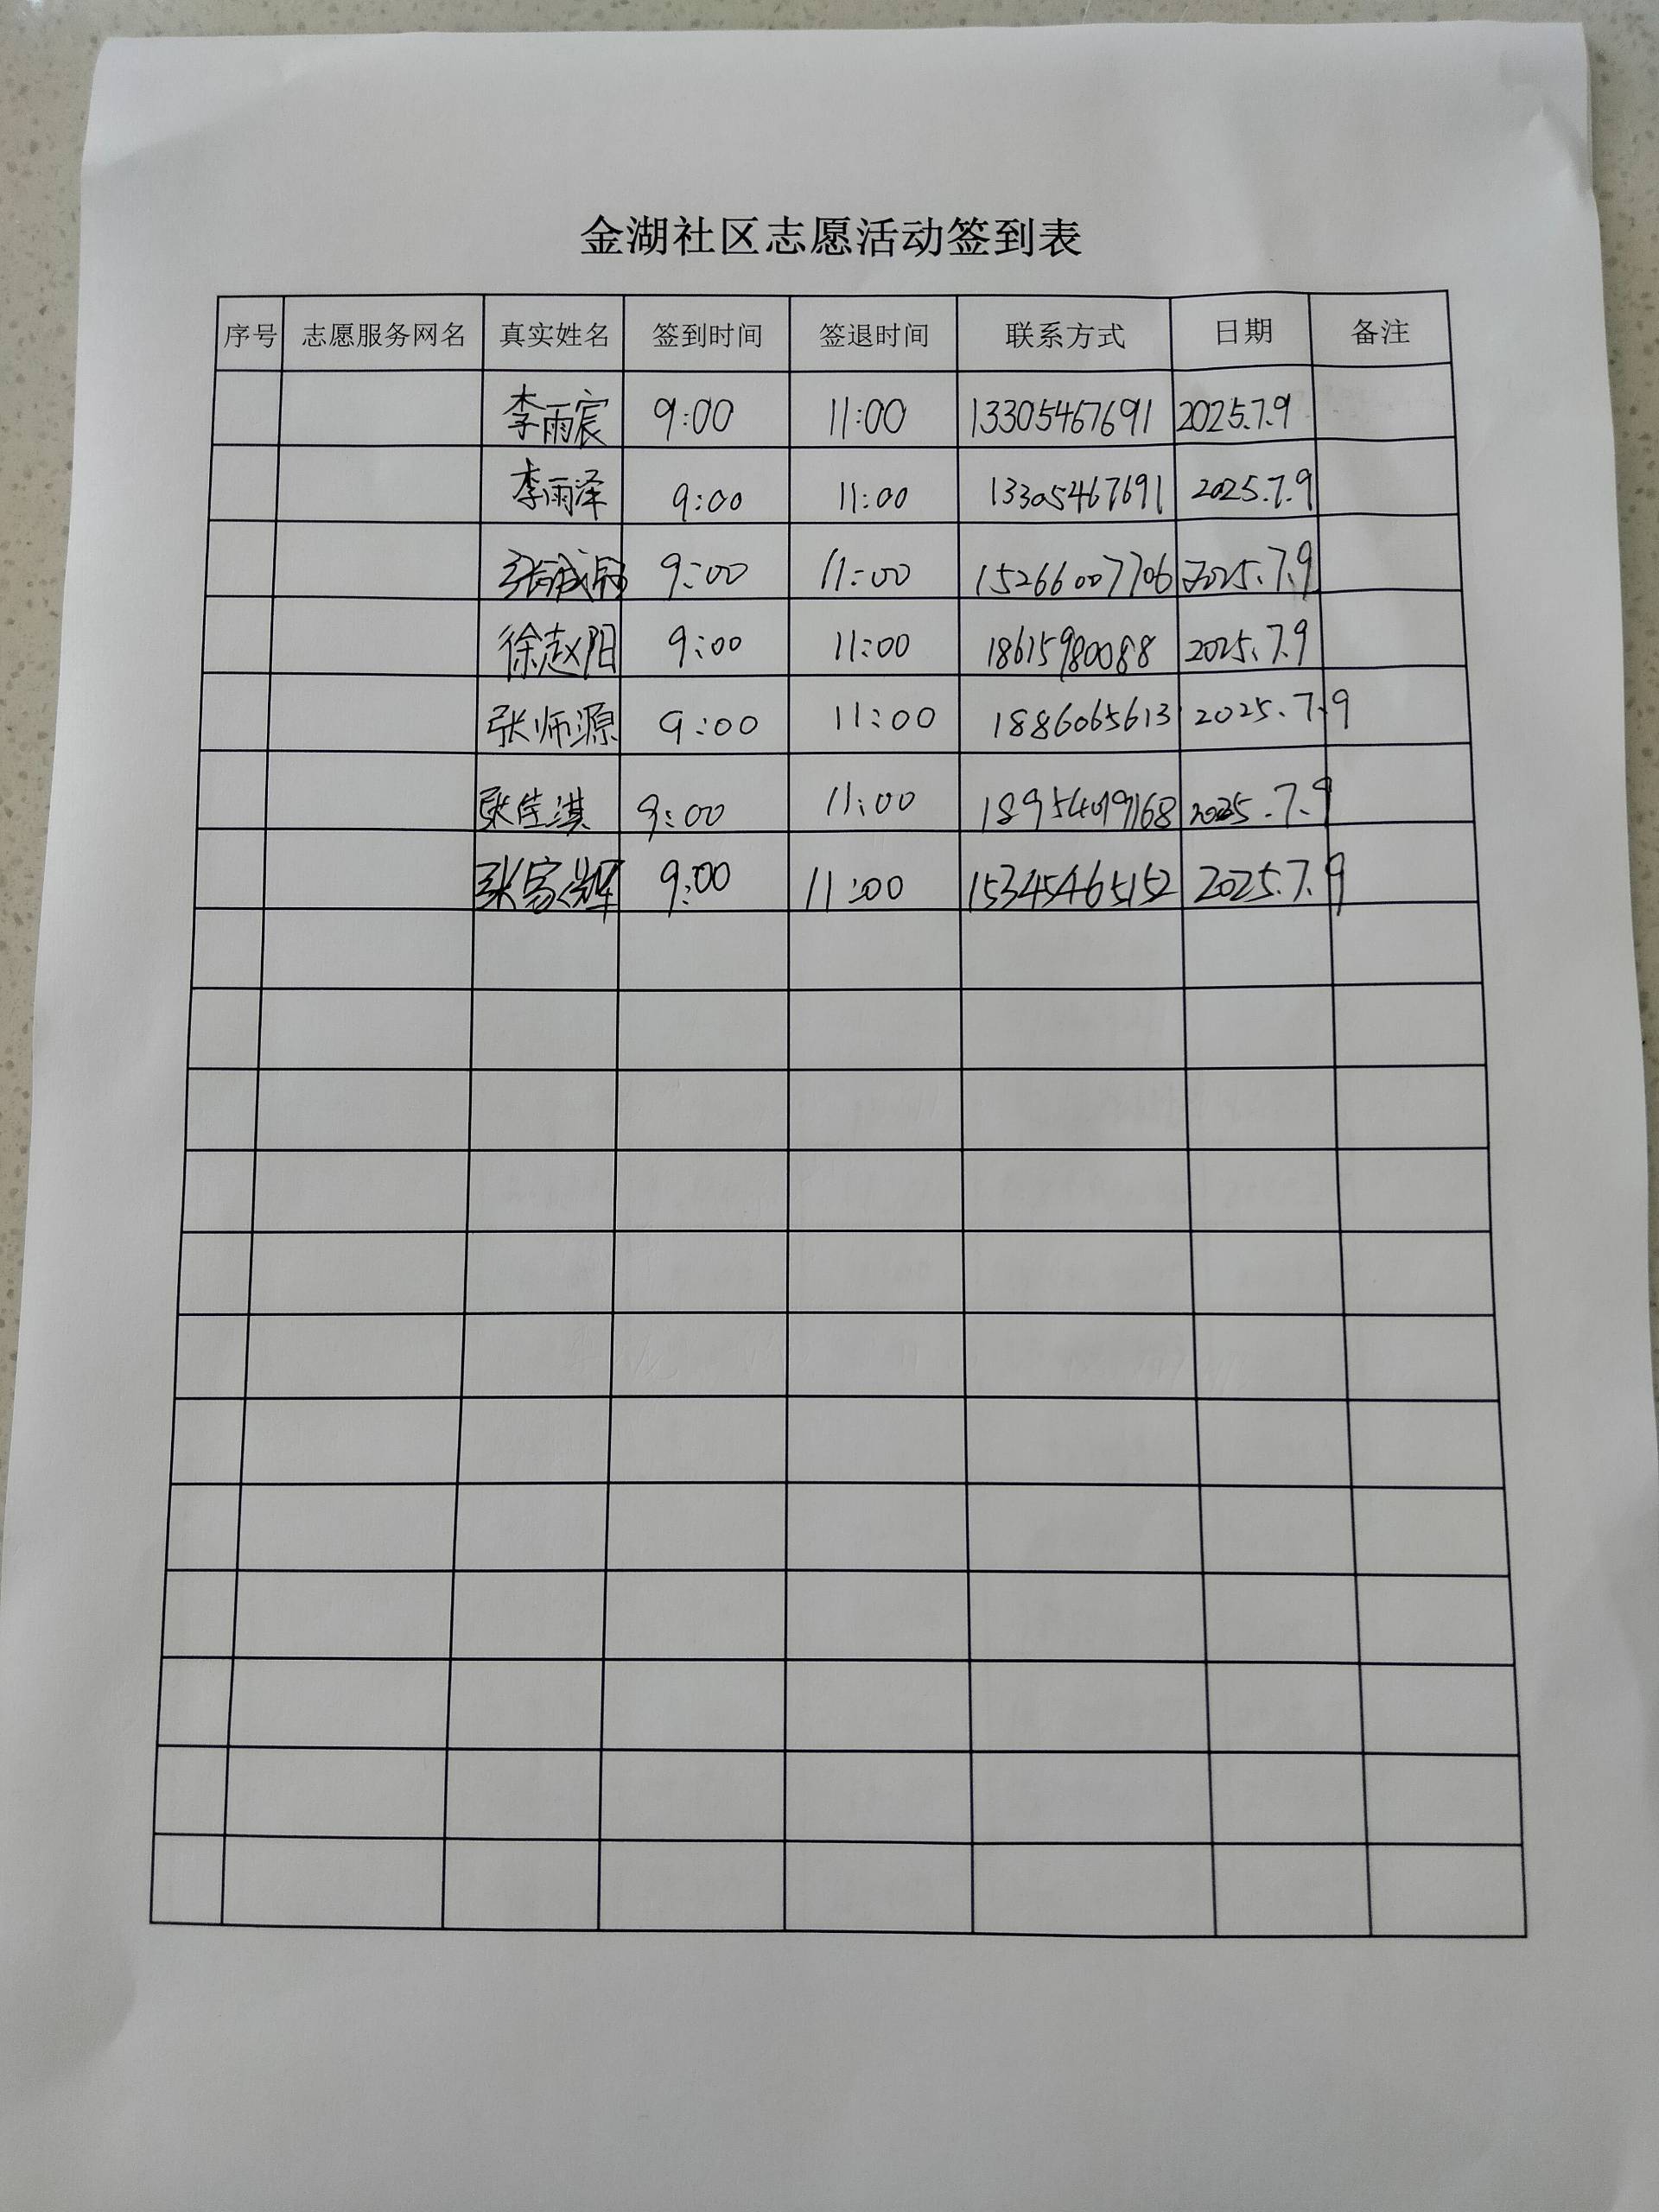 金湖社区志愿活动签到表
序号 志愿服务网名 真实姓名 签到时间 签退时间 联系方式 日期 备注
李雨宸 9:00 11:00 13305467691 2025.7.9
李雨泽 9:00 11:00 13305467691 2025.7.9
9:00 11:00 15266007706 2025.7.9
徐赵阳 9:00 11:00 18615980088 2025.7.9
张师源 9:00 11:00 1886065613 2025.7.9
张佳淇 9:00 11:00 2025.7.9
张家辉 9:00 11:00 15345465152 2025.7.9